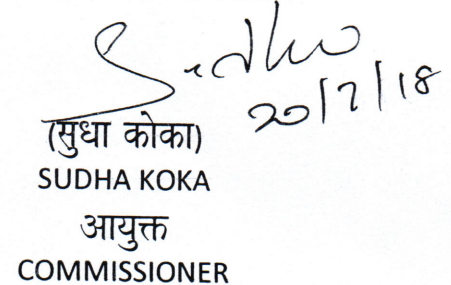 Sudha
20/7/18
(सुधा कोका)
SUDHA KOKA
आयुक्त
COMMISSIONER